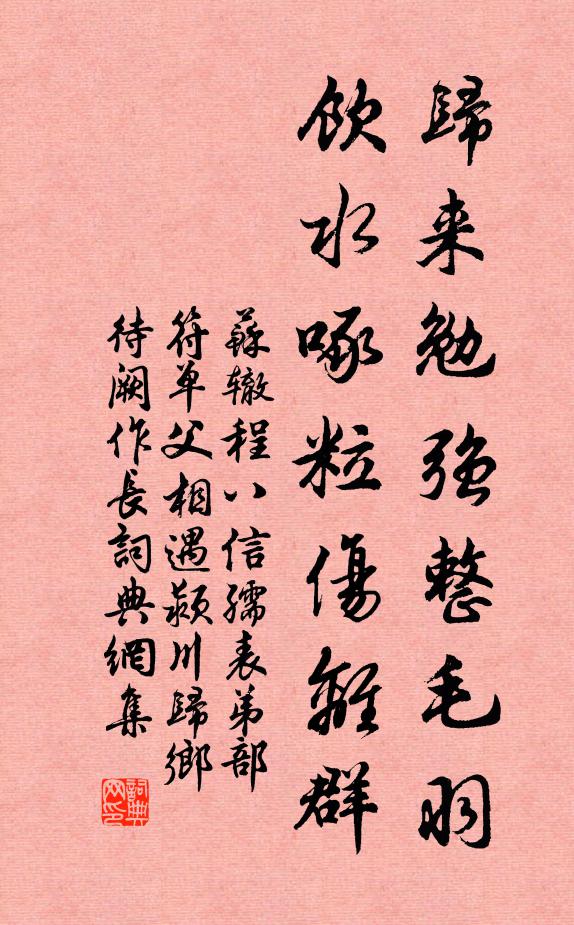 歸来勉強整毛羽
飲水啄粒傷離群
蘇辙程八信孺表弟部
符单父相遇颍川歸鄉
待阙作長詞典網集
詞典网印